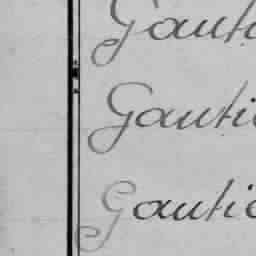 Gauti
Gautie
Gautie